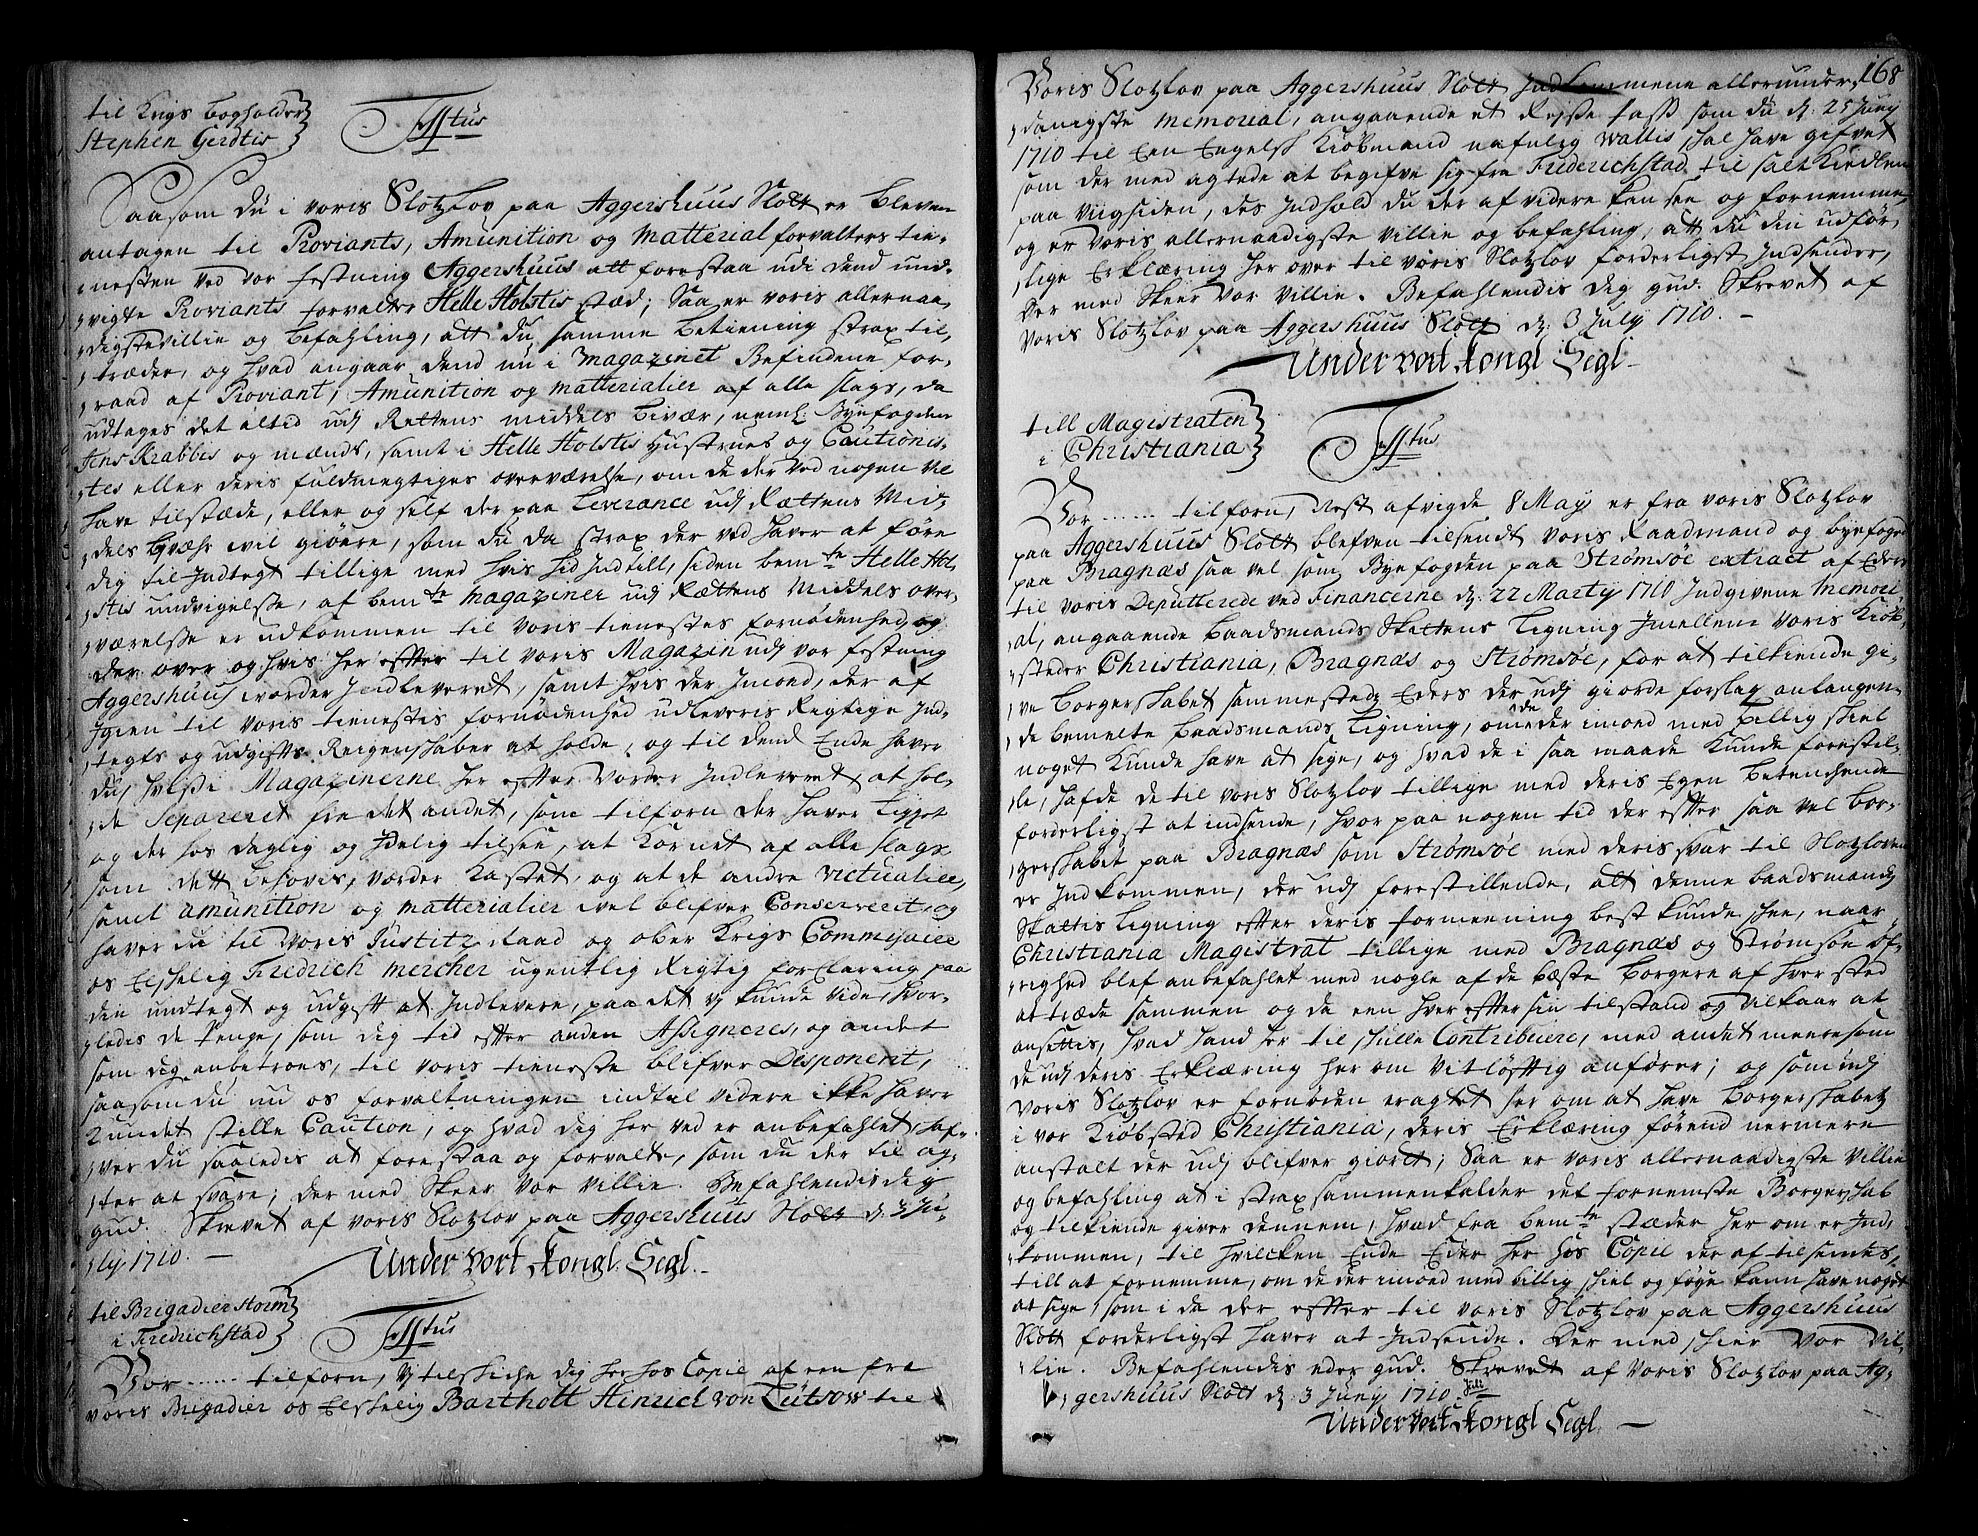 til Krigs bogholder
Stephen Gerdtis
Titus
Saasom du i voris Slotzlov paa Aggershuus Slott er bleven
antagen til Proviants, Amunition og Matterial forvalters tie-
nesten ved vor festning Aggershuus att forestaa udi dend und-
vigte Proviants forvalter Helle Holstis sted; Saa er voris allernaa-
digste villie og befahling, att du samme betiening strax til-
træder, og hvad angaar dend nu i magazinet befindene for-
raad af Proviant, Amunition og matterialier af alle slags, da
udtages det altid udj Rettens middels bivær, neml: Byefogden
Jens Krabbis og mænds, samt i Helle Holstis hustrues og Cautionis-
tes eller deris fuldmegtiges overværelse, om de der ved nogen vil
have tilstæde, eller og self der paa Leverance udj Rættens Mid-
dels bivæhr wil giøre, som du da strax der ved haver at føre
dig til Indtegt tillige med hvis hid Indtill, siden bemte Helle Hol-
stis undvigelse, af bemte magaziner udj Rættens Middels over-
værelse er udkommen til voris tienestes fornødenhed og
der over og hvis her effter til voris Magazin udj vor festning
Aggershuus worder Indleveret, samt hvis der Imod, der af
Igien til voris tienestis fornødenhed udleveris Rigtige Ind-
tegts og udgiffts Reigenskaber at holde, og til dend Ende haver
du, hvis i Magazinerne her effter vorder Indleveret, at hol-
de Separeret fra det andet, som tilforn der haver Ligget
og der hos daglig og Idelig tilsee, at Kornet af alle slags
som dett behøvis, værder Kastet, og at de andre victualier,
samt amunition og matterialier wel blifver Conserverit, og
haver du til Voris Justitz Raad og ober Krigs Commissaire
os Elskelig Fredrich mercher ugentlig Rigtig forklaring paa
den indtegt og udgifft at Indlevere, paa det vj kunde vide, hvor-
ledis de Penge, som dig tid effter anden Assigneres, og andet
som dig anbetroes, til voris tieneste blifver Desponerit,
saasom du nu os forvaltningen indtil videre ikke haver
Kundet stille Caution, og hvad dig her ved er anbefahlet haf-
ver du saaledis at forestaa og forvalte, som du der til ag-
ter at svare; der med Skeer vor villie. Befahlendis dig
gud. Skrevet af voris Slotzlov paa Aggershuus Slott d: 3 Ju-
ly 1710. —
Under vort Kongl. Segl.
til Brigadier Storm
i Fredrichstad
Titus
Vor ...... tilforn, Vj tilskiche dig her hos Copie af een fra
voris Brigadier os Elskelig Bartholt Hinrich von Lützow til
168
Voris Slotzlov paa Aggershuus Slott Indkommene allerunder-
danigste Memorial, angaaende et Reise Pass som du d: 25 Juny
1710 til Een Engelsk Kiøbmand nafnlig Wallis skal have gifvet
som der med agtede at begifve sig fra Frederichstad til salt Kiedlen
paa Viigsiden, des Indhold du der af videre kan see og fornemme,
og er Voris allernaadigste villie og befahling, att du din udfør-
lige Erklæring her over til voris Slotzlov forderligst Indsender,
Der med Skeer vor villie. Befahlendis dig gud. Skrevet af
voris Slotzlov paa Aggershuus Slott d: 3 July 1710. —
Under vort Kongl Segl.
till Magistraten
i Christiania
Titus
Vor ...... tilforn, Nest afvigde 8 May er fra voris Slotzlov
paa Aggershuus Slott blefven tilsendt voris Raadmand og byefoged
paa Bragnæs saa vel som Byefogden paa Strømsøe extract af Eders
til voris Deputterede ved Financerne d: 22 Marty 1710 Indgivene Memori-
al, angaaende baadsmands Skattens Ligning Imellem voris Kiøb-
steder Christiania, Bragnæs og Strømsøe, for at tilkiende gi-
ve borgerskabet sammesteds Eders der udj giorde forslag anlangen-
de bemelte baadsmands Ligning, om de der imod med billig skiel
noget Kunde have at sige, og hvad de i saa maade Kunde forestil-
le, hafde de til voris Slotzlov tillige med deris Egen betenchende
forderligst at indsende, hvor paa nogen tid der effter saa vel bor-
gerskabet paa Bragnæs som Strømsøe med deris svar til Slotzloven
er Indkommen, der udj forestillende, att denne baadsmands
Skattis Ligning effter deris formeening best kunde skee, naar
Christiania Magistrat tillige med Bragnæs og Strømsøe Øf-
righed blef anbefahlet med nogle af de beste borgere af hver sted
at træde sammen og da een hver effter sin tilstand og vilkaar at
ansettis, hvad hand her til skulle Contribuere, med andet meere som
de udj deris Erklæring her om vitløfftig anfører; og som udj
voris Slotzlov er fornøden eragtet her om at have borgerskabetz
i vor Kiøbsted Christiania, deris Erklæring førend nermere
anstalt der udj blifver giort; Saa er voris allernaadigste villie
og befahling at i strax sammenkalder det fornemste Borgerskab
og tilkiende giver dennem, hvad fra bemte stæder her om er Ind-
kommen, til hvilcken Ende Eder her hos Copie der af tilsendes,
till at fornemme, om de der imod med billig skiel og føye kann have noget
at sige, som i da der effter til voris Slotzlov paa Aggershuus
Slott forderligst haver at Indsende. Der med skeer vor vil-
lie. Befahlendis eder gud. Skrevet af voris Slotzlov paa Ag-
gershuus Slott d: 3 Juny 1710. Juli
Under vort Kongl Segl. —